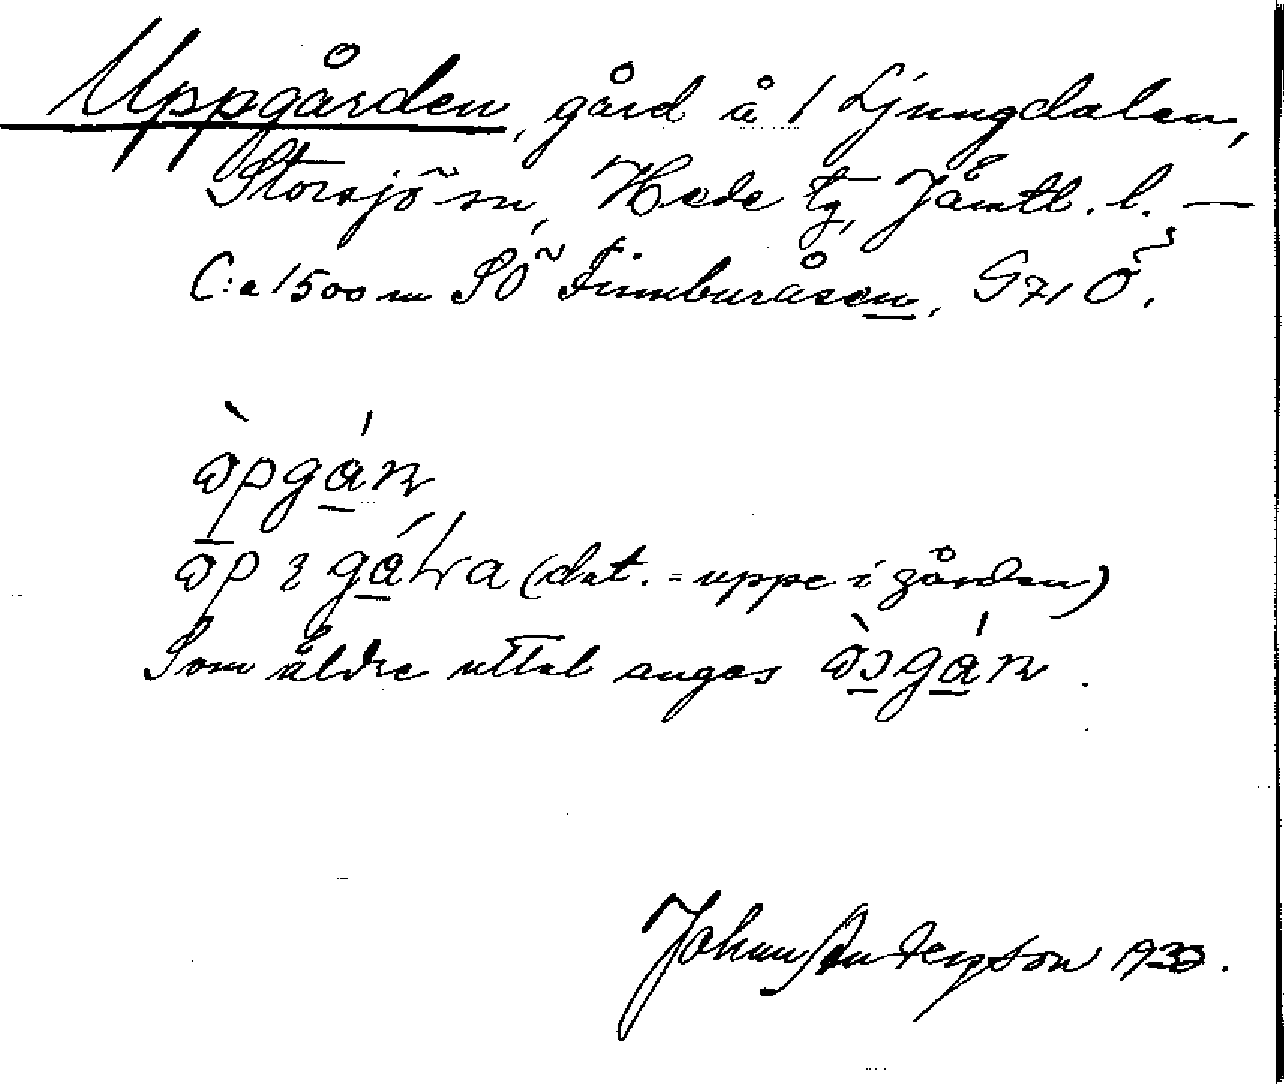 Uppgården, gård å 1 Ljungdalen,
Storsjö sn, Hede tg, Jämtl. l. —
C:a 1500 m SÖ Finnburåsen, G71 Ö.
(dat. = uppe i gården)
Som äldre uttal anges
Johan Anderson 1933.